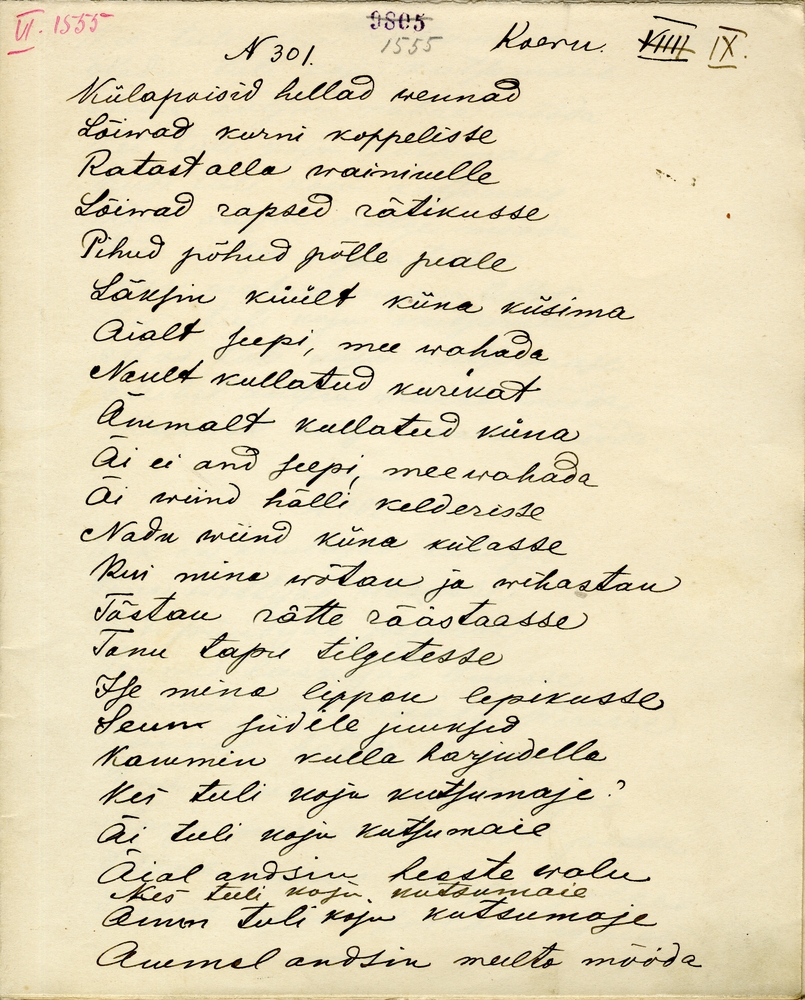 VI. 1555
9805
1555
Koeru. VIIII IX.
N 301.
Külapoisid hellad wennad
Lõiwad kurni koppelisse
Ratast alla wainiuelle
Lõiwad rapsed rätikusse
Pihud põhud põlle peale
Läksin küült küna küsima
Äialt seepi, mee wahada
Nault kullatud kurikat
Ämmalt kullatud küna
Äi ei and seepi, mee wahada
Äi wiind hälli kelderisse
Nadu wiind küna külasse
Kui mina wõtan ja wihastan
Tõstan rätte räästaasse
Tanu tapu tilgetesse
Ise mina lippan lepikusse
Seun siidile juuksed
Kammin kulla harjudella
Kes tuli koju kutsumaje?
Äi tuli koju kutsumaie
Äial andsin heeste walu
Kes tuli koju kutsumaie
Ämm tuli koju kutsumaje
Ämmel andsin meelta mööda